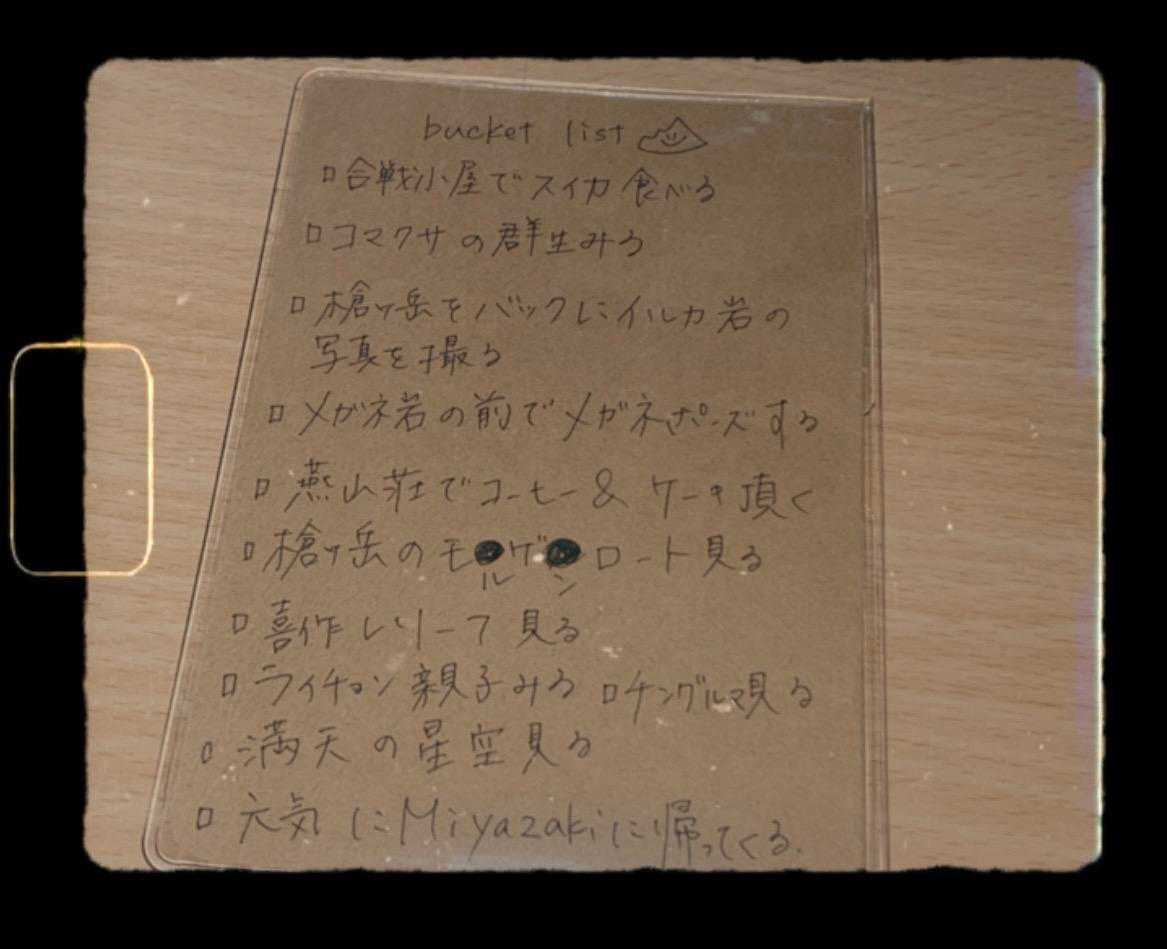 bucket list
□合戦小屋でスイカ食べる
□コマクサの群生みる
□槍ヶ岳をバックにイルカ岩の
写真を撮る
□メガネ岩の前でメガネポーズする
□燕山荘でコーヒー&ケーキ頂く
□槍ヶ岳のモルゲンロート見る
□喜作レリーフ見る
□ライチョウ親子みる □チングルマ見る
□満天の星空見る
□元気にMiyazakiに帰ってくる.